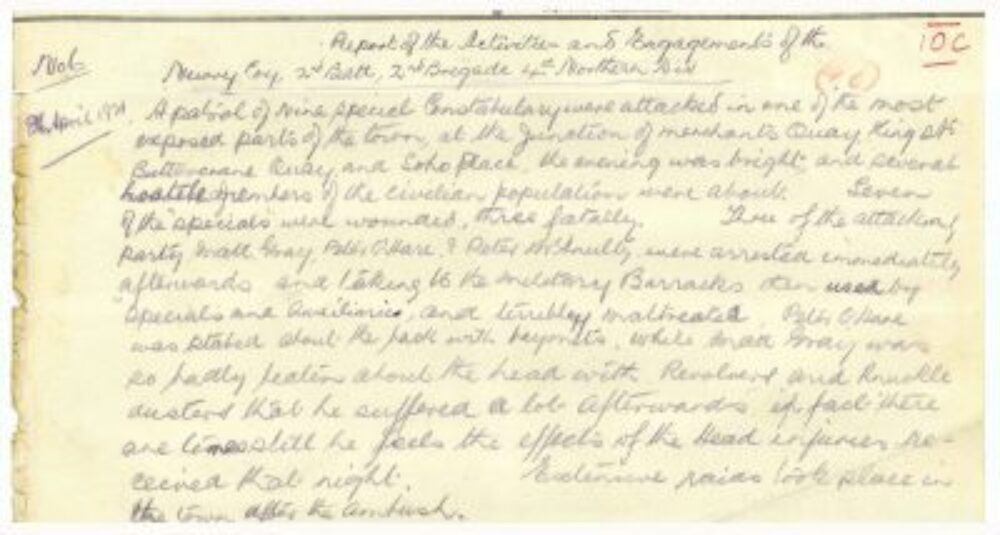 Report of the Activities and Engagements of the
10C
No 6
Newry Coy, 2nd Batt, 2nd Brigade 4th Northern Div
8th April 1921
A patrol of nine special Constabulary were attacked in one of the most
exposed parts of the town, at the junction of merchants Quay, King St
Buttercrane Quay, and Soho place, the evening was bright, and several
hostile members of the civilian population were about. Seven
of the specials were wounded, three fatally. Three of the attacking
party Matt Gray, Peter O'Hare, & Peter McAnulty were arrested immediately
afterwards and taking to the military Barracks then used by
specials and Auxiliaries, and terribly maltreated. Peter O'Hare
was stabed about the back with bayonets, while Matt Gray was
so badly beaten about the head with Revolvers and knuckle
dusters that he suffered a lot afterwards, in fact there
are times still he feels the effects of the Head injuries re-
ceived that night. Extensive raids took place in
the town after the ambush.